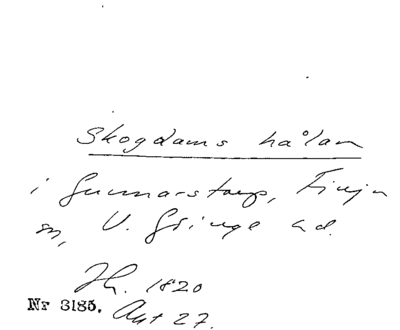 Skogdams hålan
i Gunnarstorp, Finja
sn, V. Göinge hd.
Jh. 1820
Nr 3185. Akt 27.